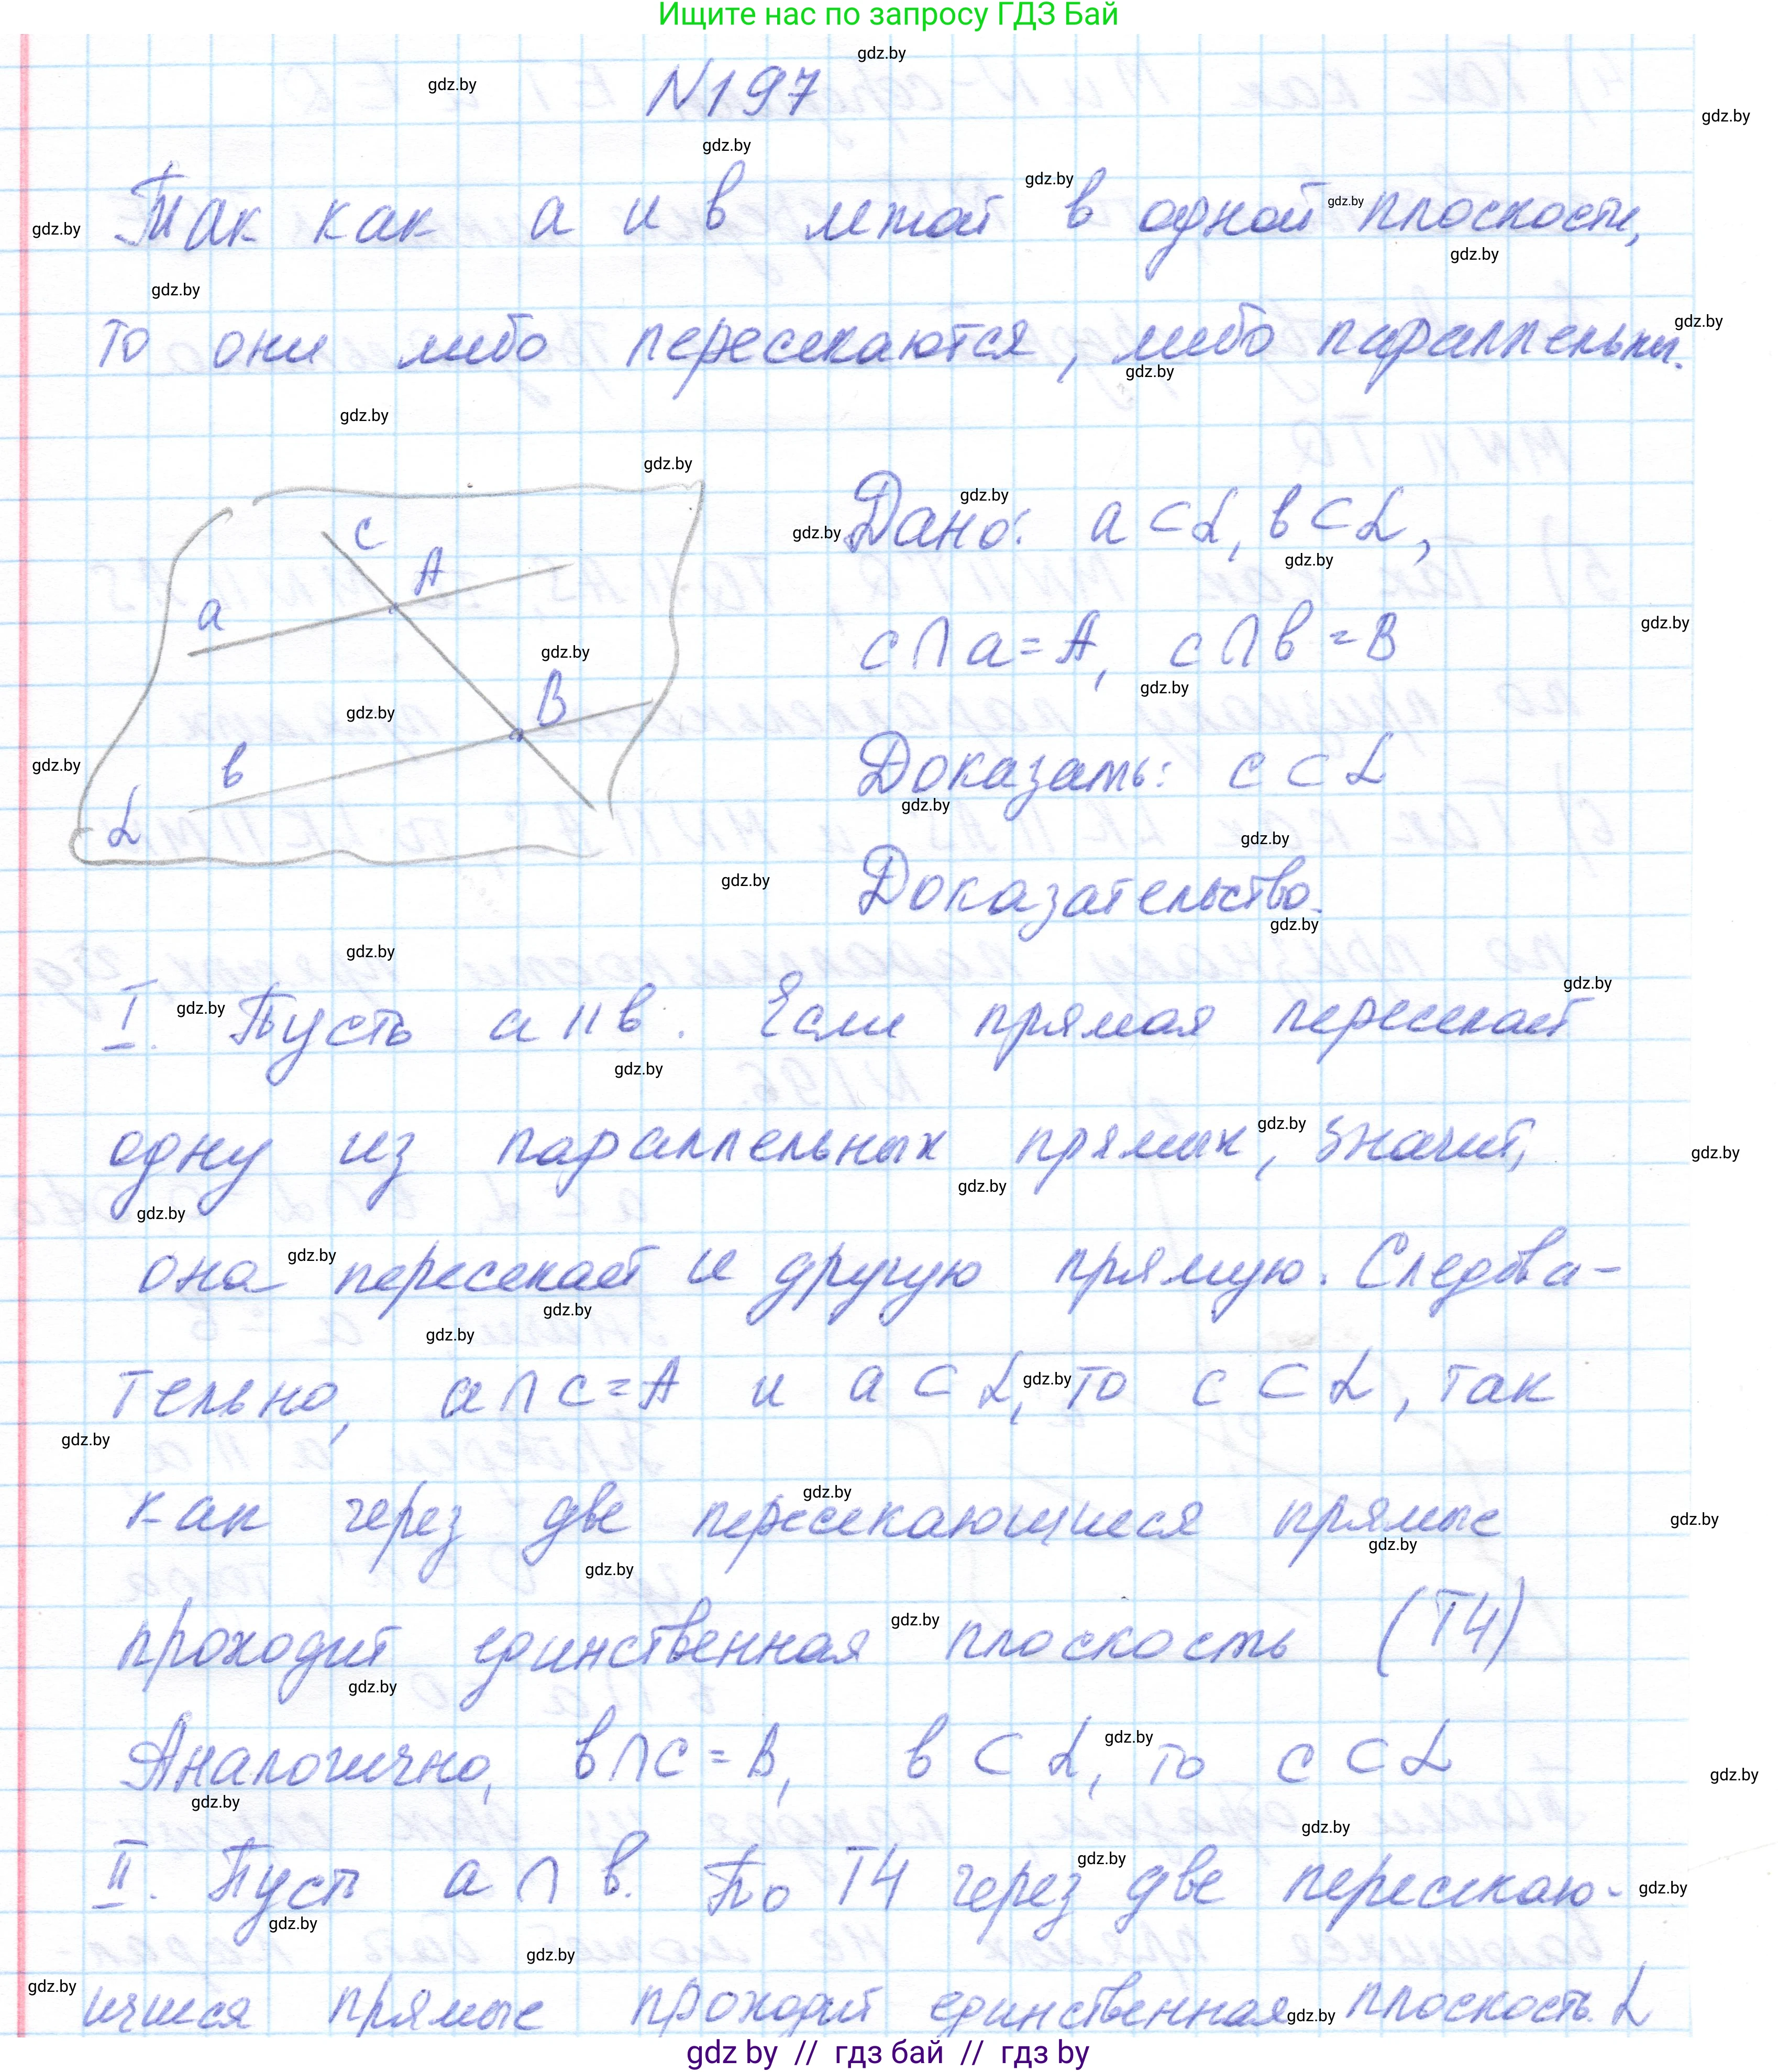 Ищите нас по запросу ГДЗ Бай
N197
Так как а и в лежат в одной плоскости,
то они либо пересекаются, либо параллельны.
Дано: a ⊂ α, в ⊂ α,
c ∩ a = A, c ∩ в = B
Доказать: c ⊂ α
Доказательство.
c
A
a
B
в
α
I. Пусть a || в. Если прямая пересекает
одну из параллельных прямых, значит,
она пересекает и другую прямую. Следова-
тельно, a ∩ c = A и a ⊂ α, то c ⊂ α, так
как через две пересекающиеся прямые
проходит единственная плоскость (Т4)
Аналогично, в ∩ c = B, в ⊂ α, то c ⊂ α
II. Пусть a ∩ в. По Т4 через две пересекаю-
щиеся прямые проходит единственная плоскость α
gdz by // гдз бай // гдз by